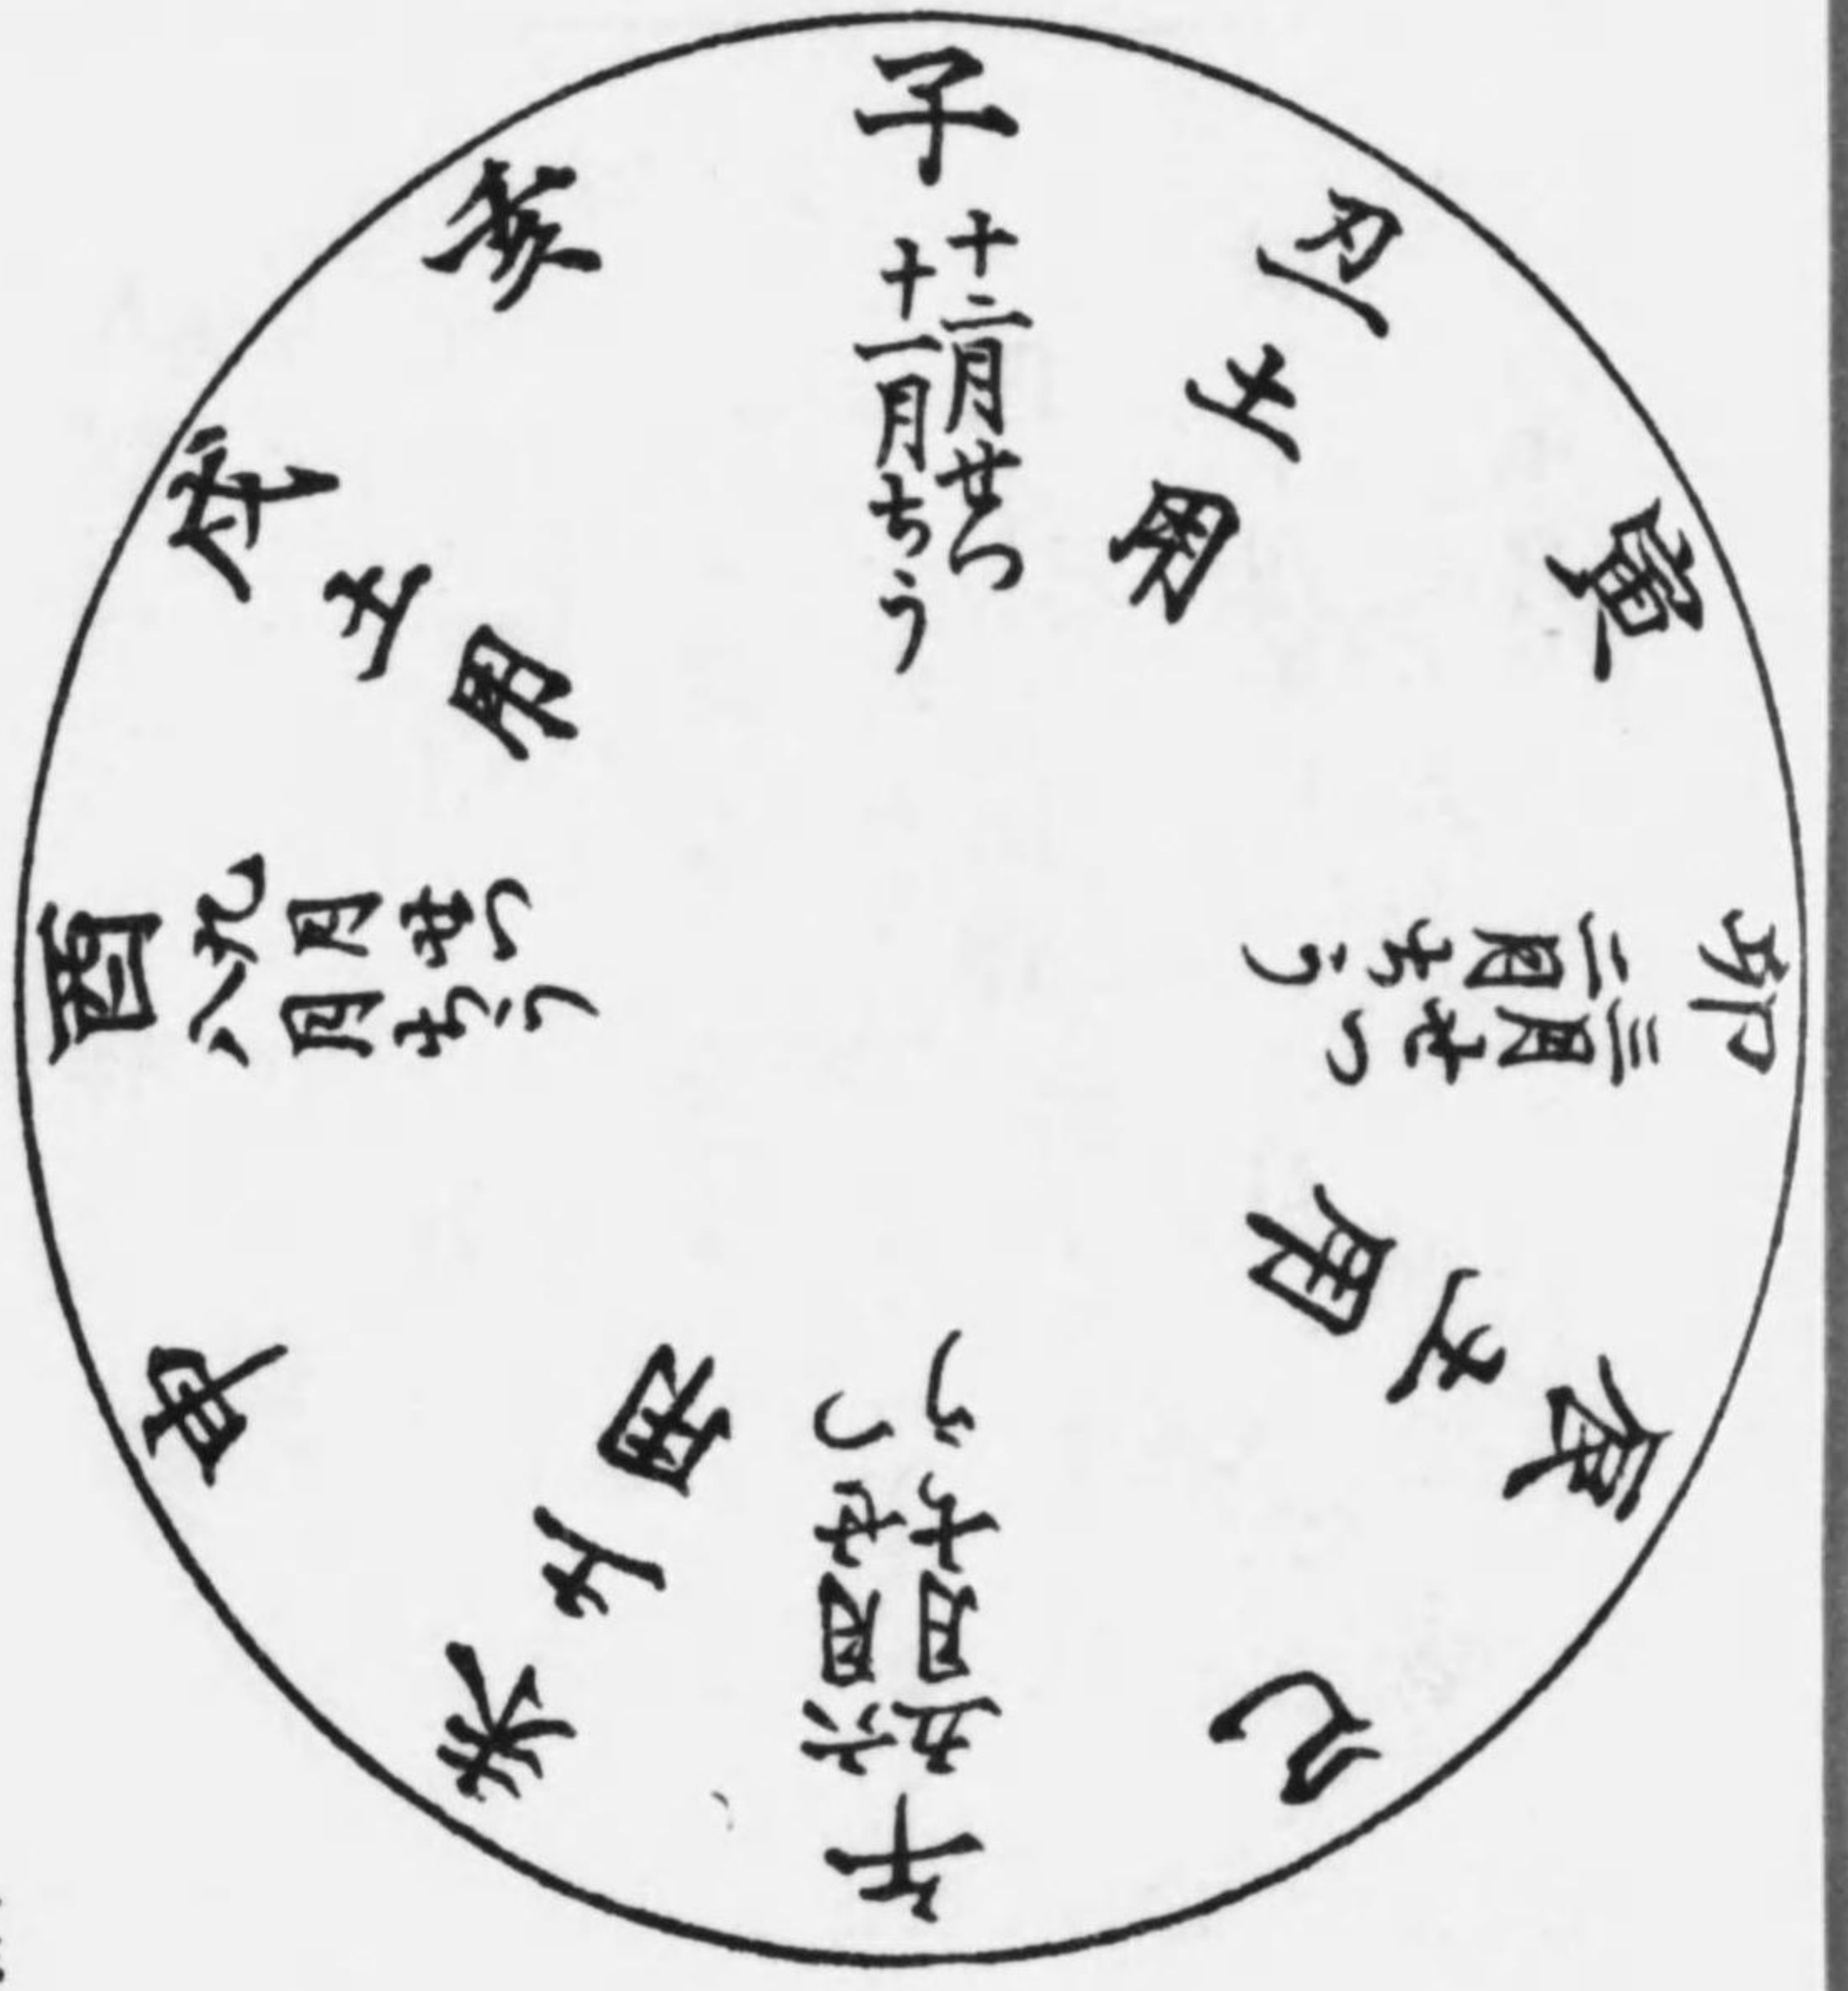 子
十二月せつ
十一月ちう
丑
土用
寅
卯
三月せつ
二月ちう
辰
土用
巳
午
六月せつ
五月ちう
未
土用
申
酉
九月せつ
八月ちう
戌
土用
亥